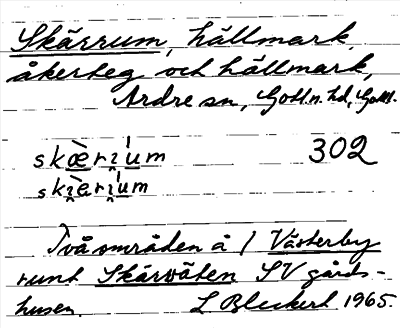 Skärrum, hällmark,
åkerteg och hällmark,
Ardre sn, Gotl. n. hd, Gotl.
skæ̀rı̍um 302
Två områden å 1 Västerby
runt Skärväten SV gårds-
husen. L Bleckert 1965.